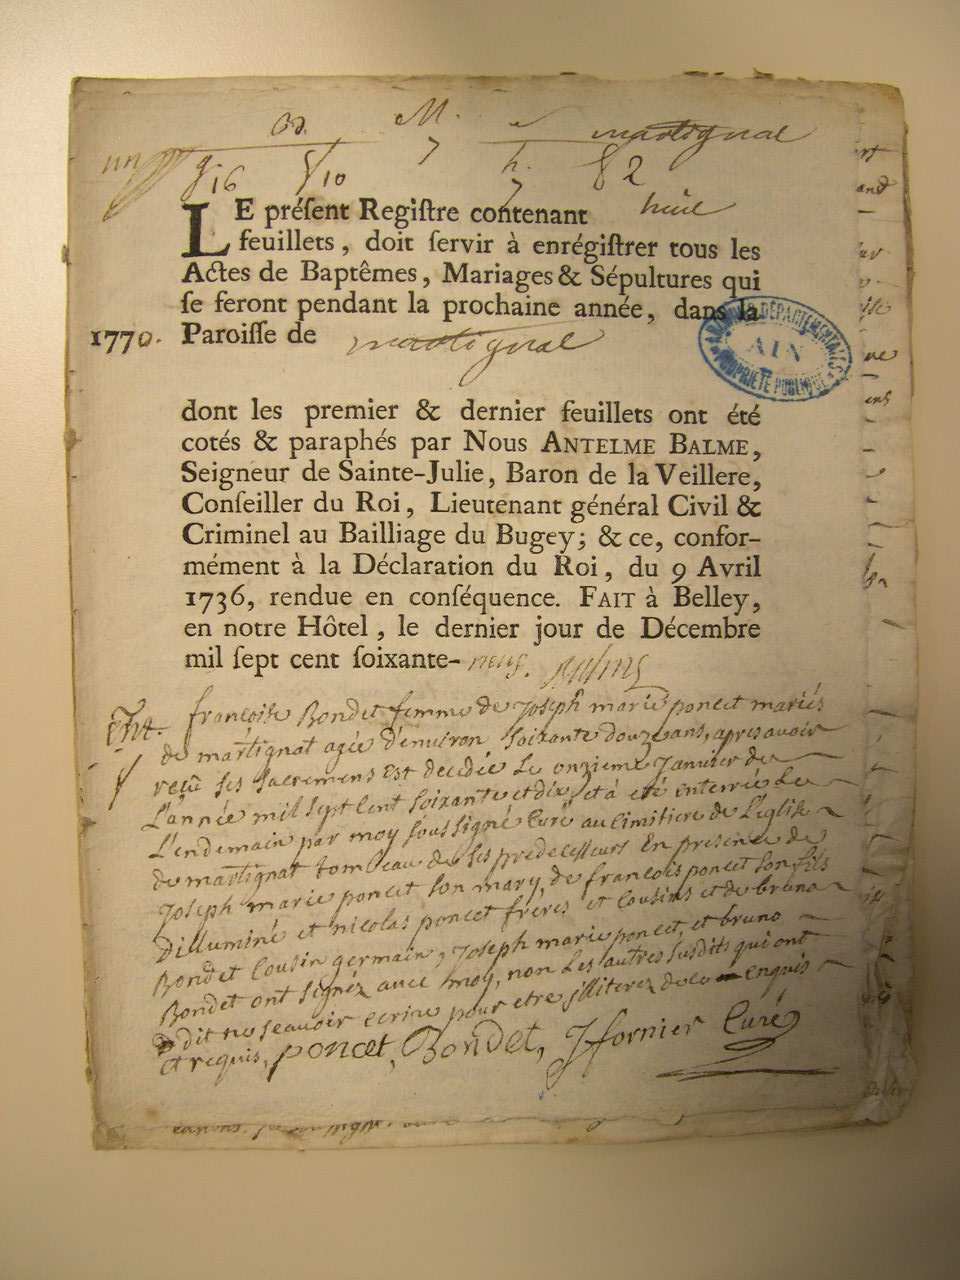 M. martignat
7
16 10 h. 82
7
LE préſent Regiſtre contenant huit
feuillets, doit ſervir à enrégiſtrer tous les
Actes de Baptêmes, Mariages & Sépultures qui
ſe feront pendant la prochaine année, dans la
1770. Paroiſſe de martignat
ARCHIVES DÉPARTEMENTALES
AIN
PROPRIÉTÉ PUBLIQUE
dont les premier & dernier feuillets ont été
cotés & paraphés par Nous ANTELME BALME,
Seigneur de Sainte-Julie, Baron de la Veillere,
Conſeiller du Roi, Lieutenant général Civil &
Criminel au Bailliage du Bugey; & ce, confor-
mément à la Déclaration du Roi, du 9 Avril
1736, rendue en conſéquence. FAIT à Belley,
en notre Hôtel, le dernier jour de Décembre
mil ſept cent ſoixante-neuf. Balme
Ent. françoise Bondet femme de Joseph marie poncet mariés
de martignat agée d'environ soixante douze ans, apres avoir
reçû ses sacremens est decidée le onzieme Janvier de
L'année mil sept cent soixante et dix, et à été enterrée Le
L'endemain par moy soussigné Curé au cimitiere de L'église
de martignat tombeau de ses predecesseurs En presence de
Joseph marie poncet son mary, de françois poncet son fils
d'illuminé et nicolas poncet freres et Cousins et de bruno
Bondet Cousin germain, Joseph marie poncet, et bruno
Bondet ont signéz avec moy, non Les autres susdits qui ont
dit ne sçavoir ecrire pour etre jlliterez de ce enquis
et requis, poncet, Bondet, J fornier Curé